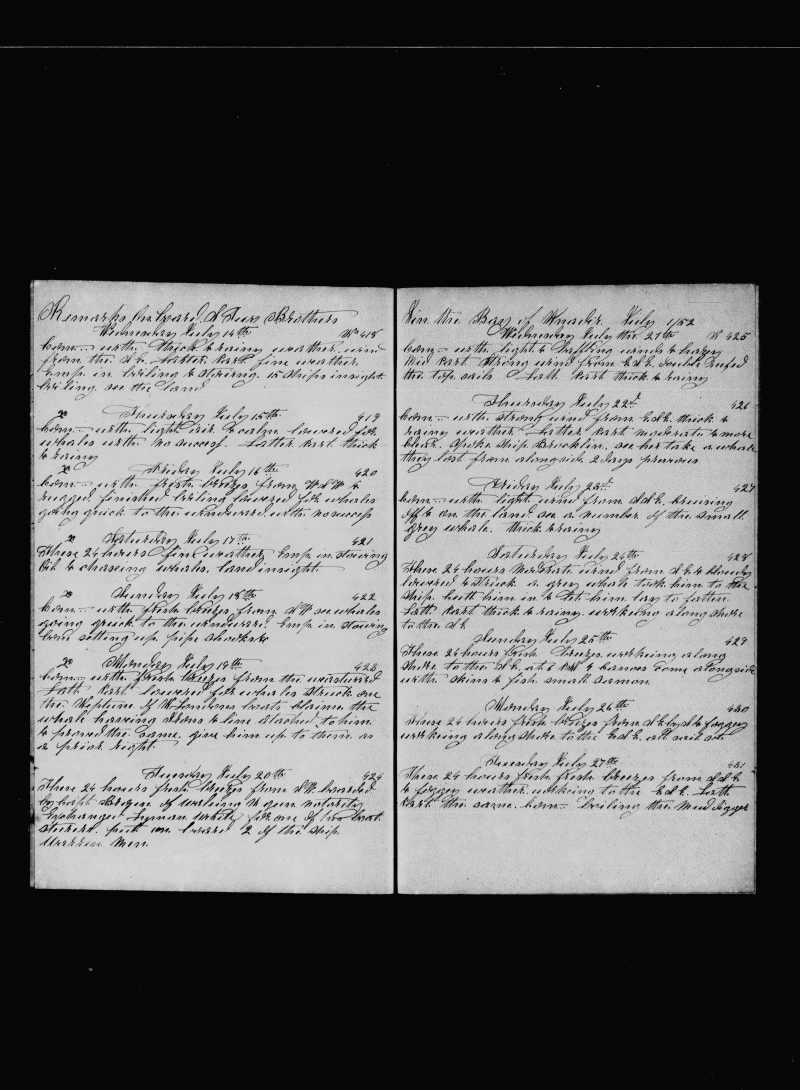 Remarks on board S. Two Brothers
Wednesday July 14th No 418
com— with thick & rainy weather wind
from the S.E. Latter Part fine weather
Emp in boiling & stowing. 15 ships insight
boiling. see the land
Thursday July 15th 419
com— with light air & calm lowered for
whales with no success. Latter Part thick
& rainy
Friday July 16th 420
com— with fresh breeze from &
rugged finished boiling lowered for whales
going quick to the windward with no success
Saturday July 17th 421
These 24 hours fine weather Emp in stowing
Oil & chasing whales. land insight
Sunday July 18th 422
com— with fresh breeze from see whales
going quick to the windward. Emp in stowing
setting up pipe shooks
Monday July 19th 423
com— with fresh breezes from the westward
Latt Part lowered for whales struck one
the Neptune of N London boats claims the
whale having Irons & line attached to him
& proved the same. give him up to them as
a prior right.
Tuesday July 20th 424
These 24 hours fresh breeze from boarded
by Capt of
Exchanged Lyman White for one of his boat
steerers. put on board 2 of the ship
Warren Men.
In the Bay of July 1852
Wednesday July the 21th N 425
com— with light & baffling winds & hazy
Mid Part Strong wind from E.S.E. double Reefed
the top sails Latt Part thick & rainy
Thursday July 22d 426
com— with strong wind from E.S.E. thick &
rainy weather. Latter Part moderate & more
clear. Spoke ship Brooklin. see her take a whale
they lost from alongside 2 days previous
Friday July 23d 427
com— with light wind from S.S.E. cruising
off & on the land see a number of the small
grey whale. thick & rainy
Saturday July 24th 428
These 24 hours Moderate wind from S.E. & cloudy
lowered & struck a grey whale took him to the
ship. cutt him in &
Latt Part thick & rainy working along shore
to the S.E.
Sunday July 25th 429
These 24 hours fresh breezes working along
shore to the S.E. at 6 4 canoes come alongside
with skins & fish small
Monday July 26th 430
These 24 hours fresh breeze from S.E. by S. & foggy
working along shore to the E.S.E. all sail out
Tuesday July 27th 431
These 24 hours fresh fresh breezes from S.S.E.
& foggy weather. working to the E.S.E. Latt
Part the same. com— boiling the Mud digger